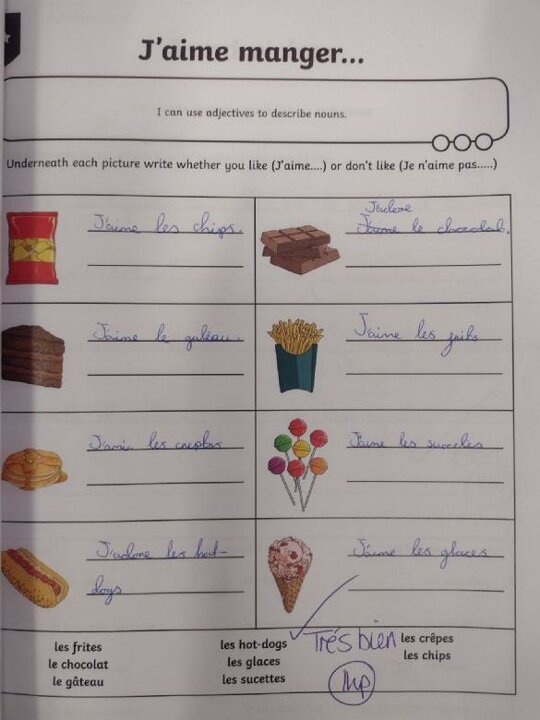 J'aime manger...
I can use adjectives to describe nouns.
Underneath each picture write whether you like (J'aime....) or don't like (Je n'aime pas.....)
J'aime les chips.
J'adore
J'aime le chocolat.
J'aime le gâteau.
J'aime les
J'amie les
J'aime les
J'adore les hot-
dogs
J'aime les glaces
les frites
le chocolat
le gâteau
les hot-dogs
les glaces
les sucettes
Trés bien
les crêpes
les chips